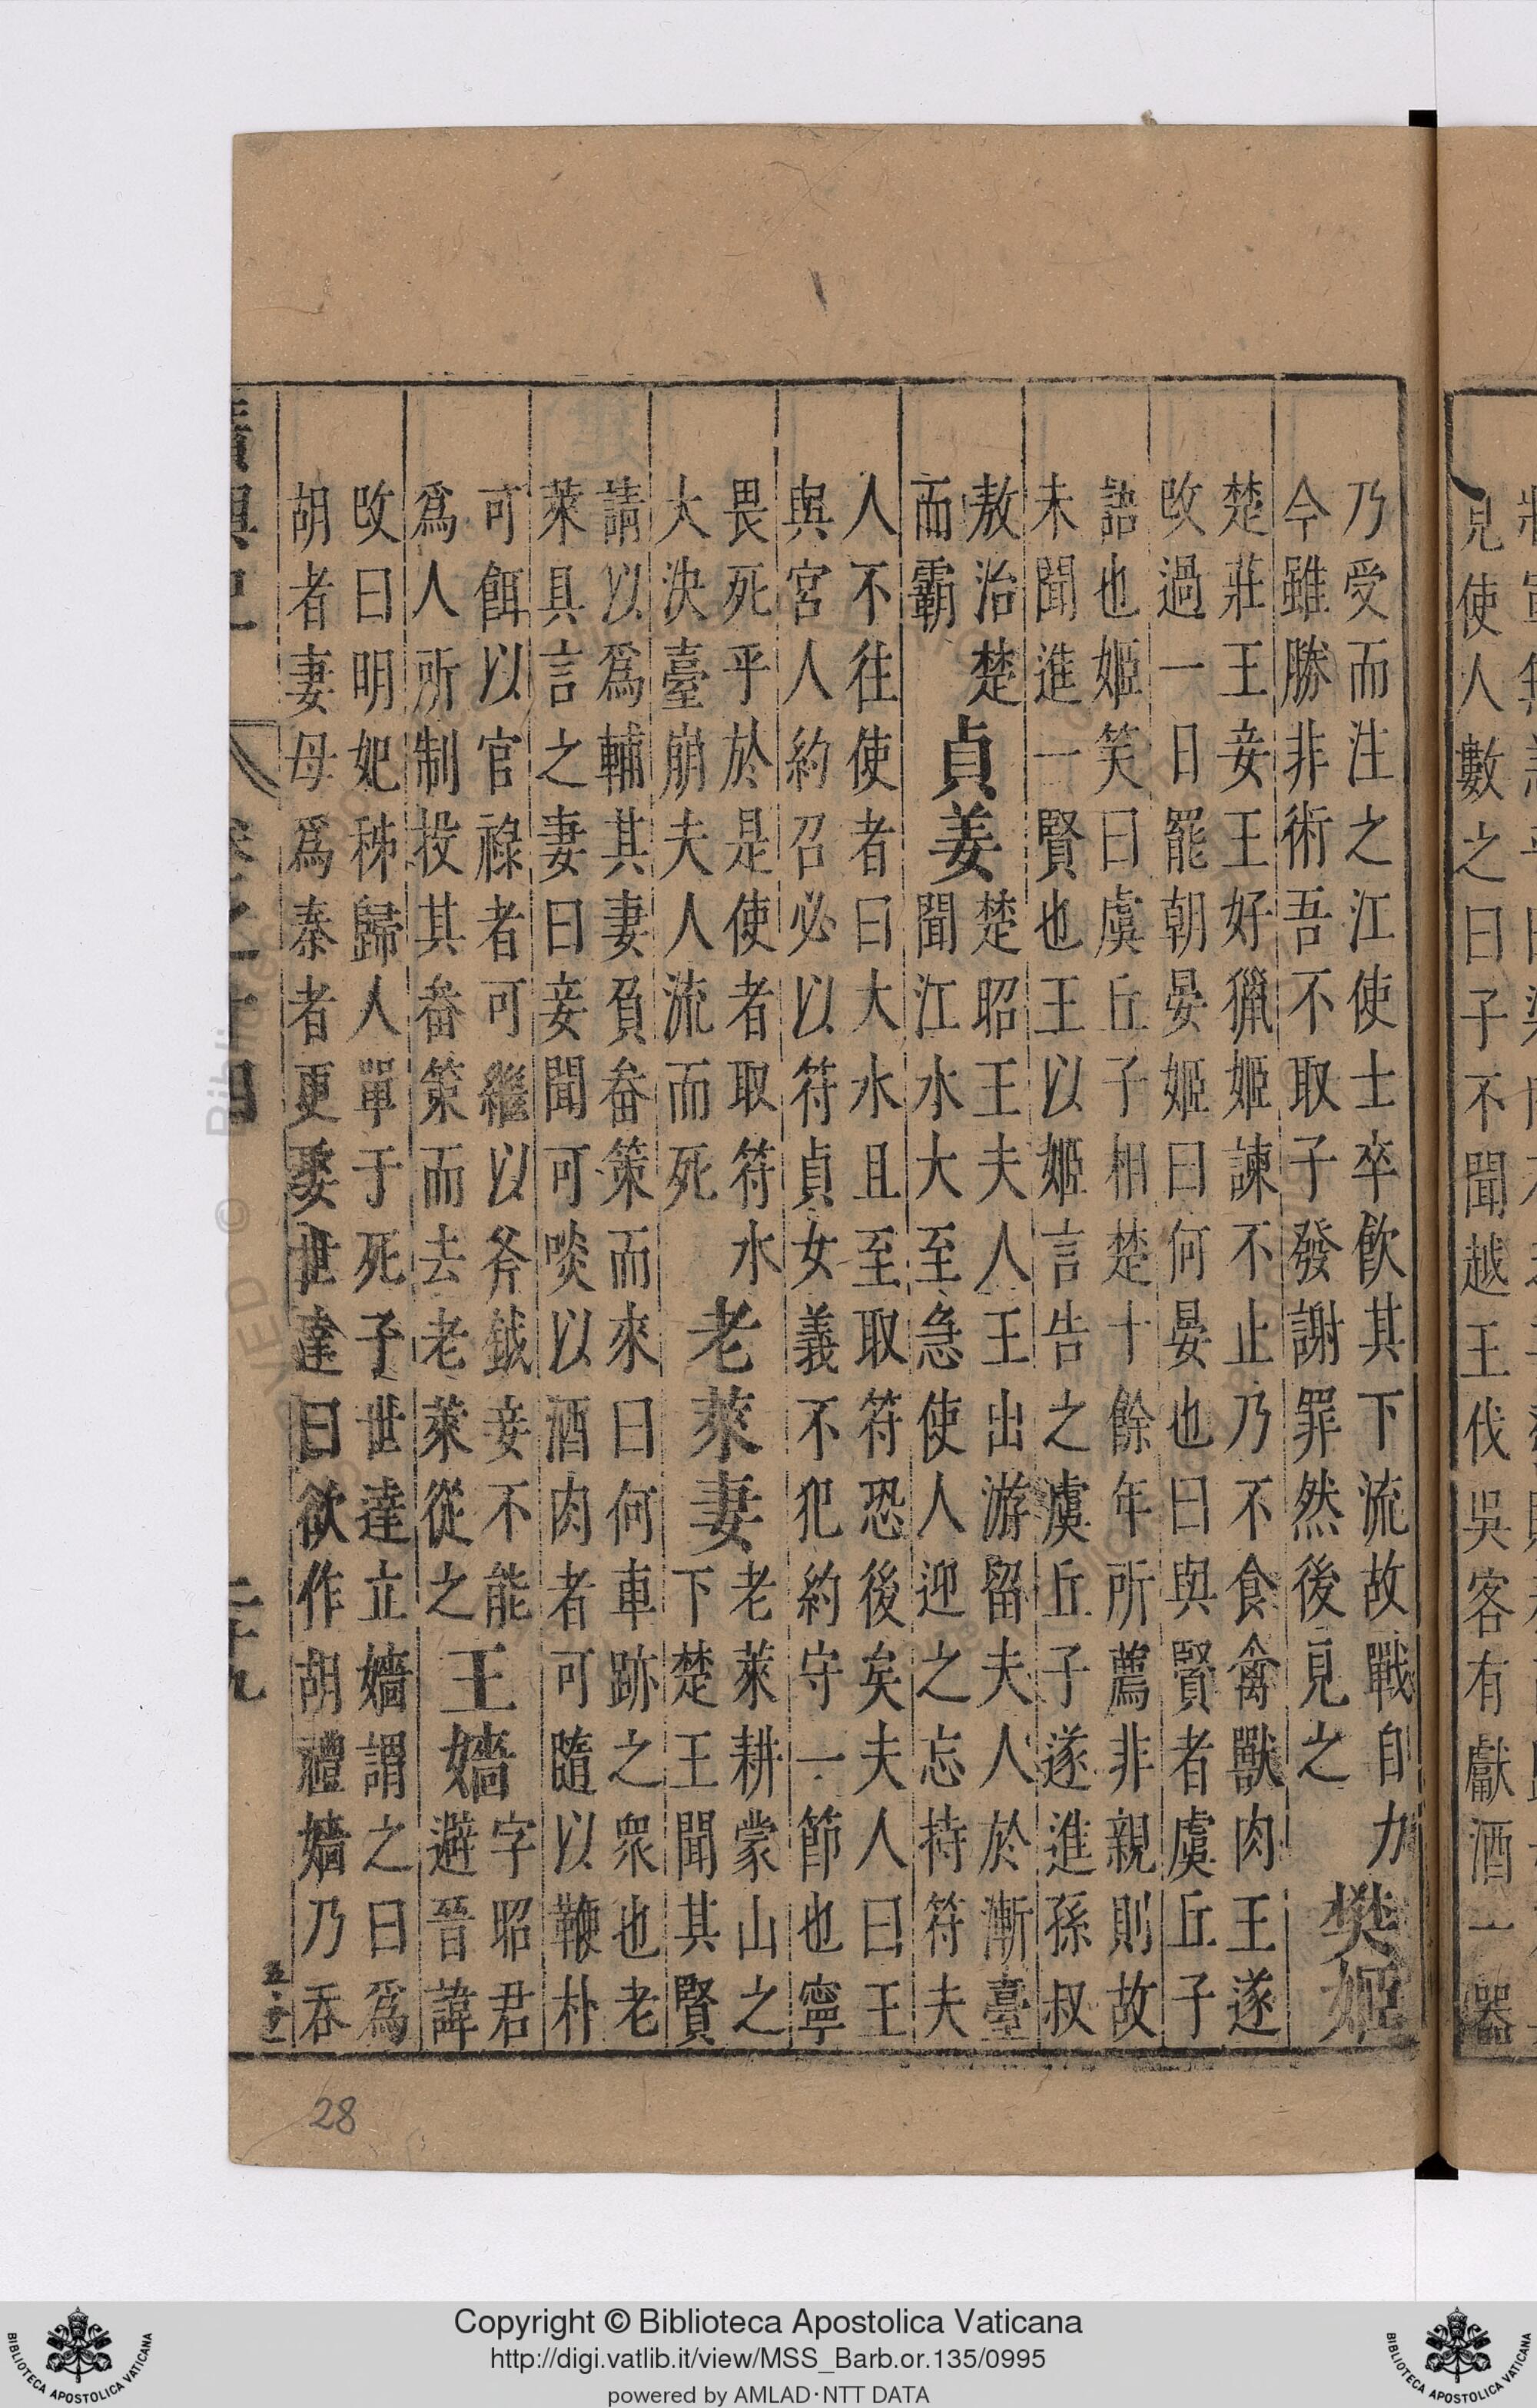 見使人數之曰子不聞越王伐吳客有獻酒一器
乃受而注之江使士卒飲其下流故戰自力
今雖勝非術吾不取子發謝罪然後見之
樊姬
楚莊王妾王好獵姬諫不止乃不食禽獸肉王遂
改過一日罷朝晏姬曰何晏也曰與賢者虞丘子
語也姬笑曰虞丘子相楚十餘年所薦非親則故
未聞進一賢也王以姬言告之虞丘子遂進孫叔
敖治楚
而霸
貞姜
楚昭王夫人王出游留夫人於漸臺
聞江水大至急使人迎之忘持符夫
人不往使者曰大水且至取符恐後矣夫人曰王
與宮人約召必以符貞女義不犯約守一節也寧
畏死乎於是使者取符水
大決臺崩夫人流而死
老萊妻
老萊耕蒙山之
下楚王聞其賢
請以爲輔其妻負畚策而來曰何車跡之衆也老
萊具言之妻曰妾聞可啖以酒肉者可隨以鞭朴
可餌以官祿者可繼以斧鉞妾不能
爲人所制投其畚策而去老萊從之
王嬙
字昭君
避晉諱
改曰明妃秭歸人單于死子世達立嬙謂之曰爲
胡者妻母爲秦者更娶世達曰欲作胡禮嬙乃吞
28
Copyright © Biblioteca Apostolica Vaticana
http://digi.vatlib.it/view/MSS_Barb.or.135/0995
powered by AMLAD･NTT DATA
BIBLIOTECA APOSTOLICA VATICANA
BIBLIOTECA APOSTOLICA VATICANA